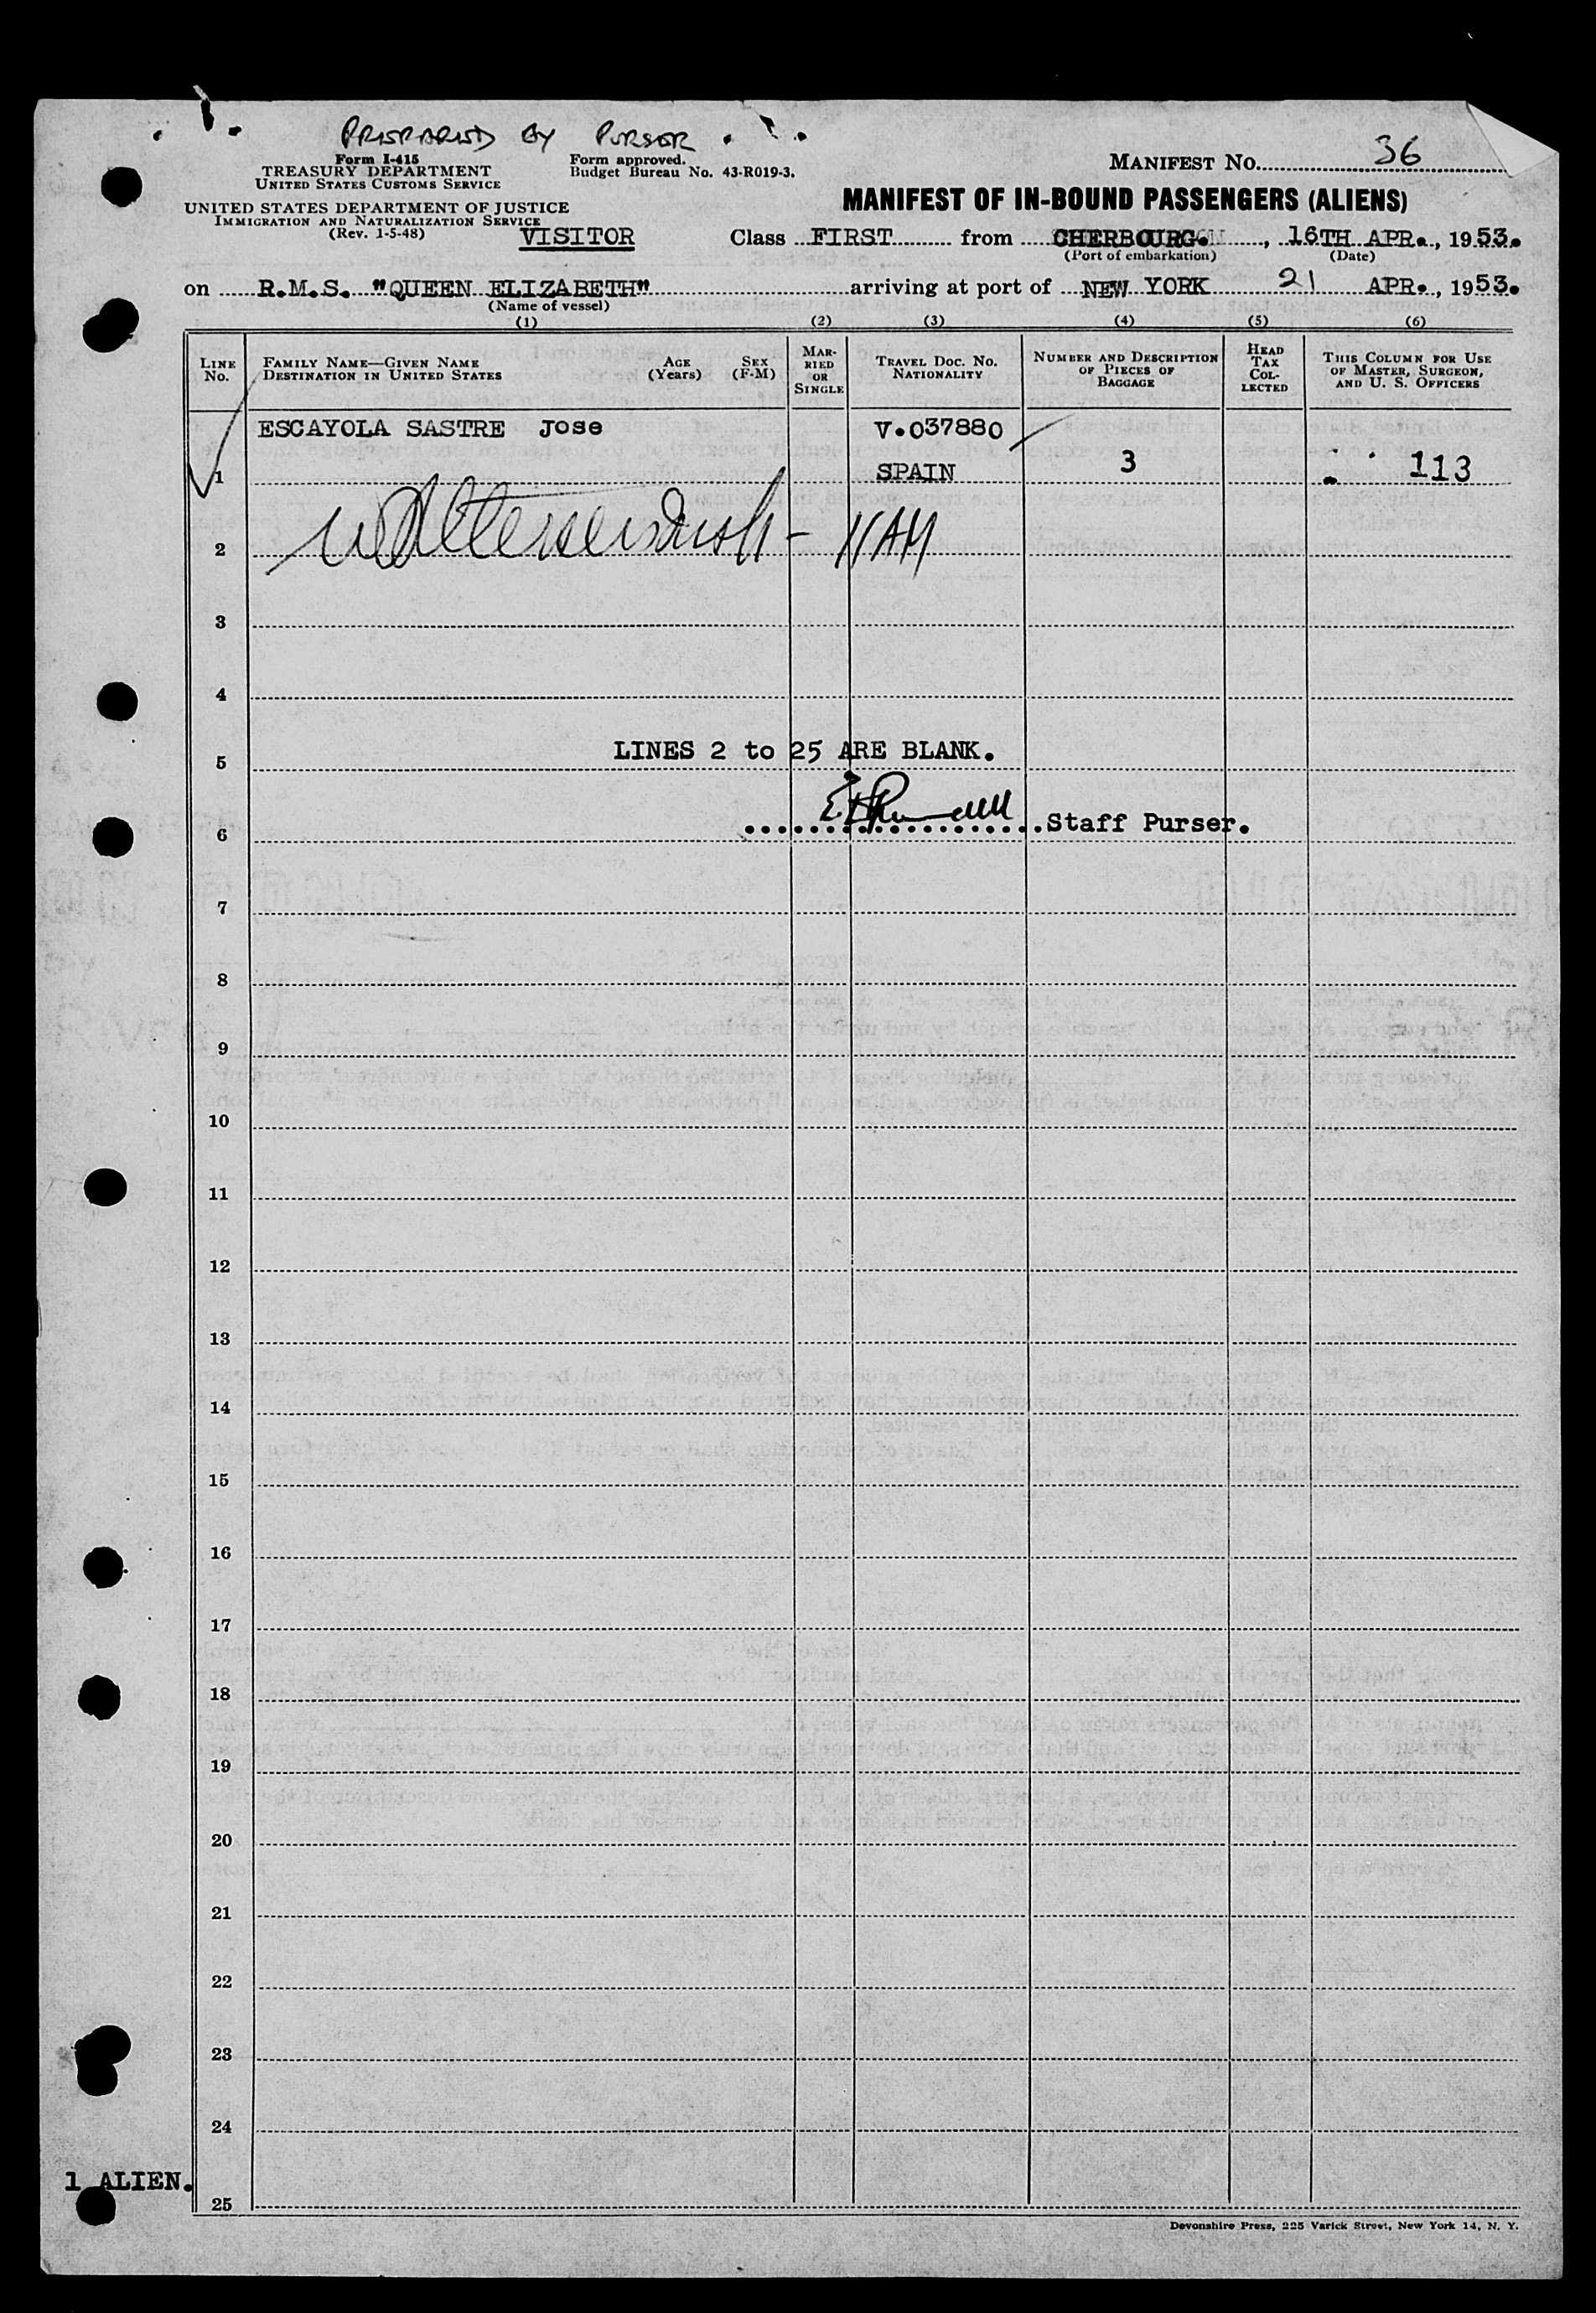 PREPARED BY PURSER.
Form I-415
TREASURY DEPARTMENT
UNITED STATES CUSTOMS SERVICE
Form approved.
Budget Bureau No. 43-R019-3.
MANIFEST NO. 36
UNITED STATES DEPARTMENT OF JUSTICE
IMMIGRATION AND NATURALIZATION SERVICE
(Rev. 1-5-48)
MANIFEST OF IN-BOUND PASSENGERS (ALIENS)
VISITOR Class FIRST from CHERBOURG. , 16TH APR. , 1953.
(Port of embarkation) (Date)
on R.M.S. "QUEEN ELIZABETH" arriving at port of NEW YORK 21 APR. , 1953.
(Name of vessel)
(1) (2) (3) (4) (5) (6)
LINE NO.
FAMILY NAME—GIVEN NAME
DESTINATION IN UNITED STATES
AGE (Years)
SEX (F-M)
MARRIED OR SINGLE
TRAVEL DOC. NO.
NATIONALITY
NUMBER AND DESCRIPTION OF PIECES OF BAGGAGE
HEAD TAX COLLECTED
THIS COLUMN FOR USE OF MASTER, SURGEON, AND U. S. OFFICERS
ESCAYOLA SASTRE Jose V.037880
1 SPAIN 3 113
2
3
4
LINES 2 to 25 ARE BLANK.
5
Staff Purser.
6
7
8
9
10
11
12
13
14
15
16
17
18
19
20
21
22
23
24
1 ALIEN.
25
Devonshire Press, 225 Varick Street, New York 14, N. Y.